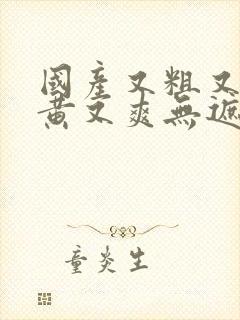 國產又粗又
黃又爽無遮
童炎生